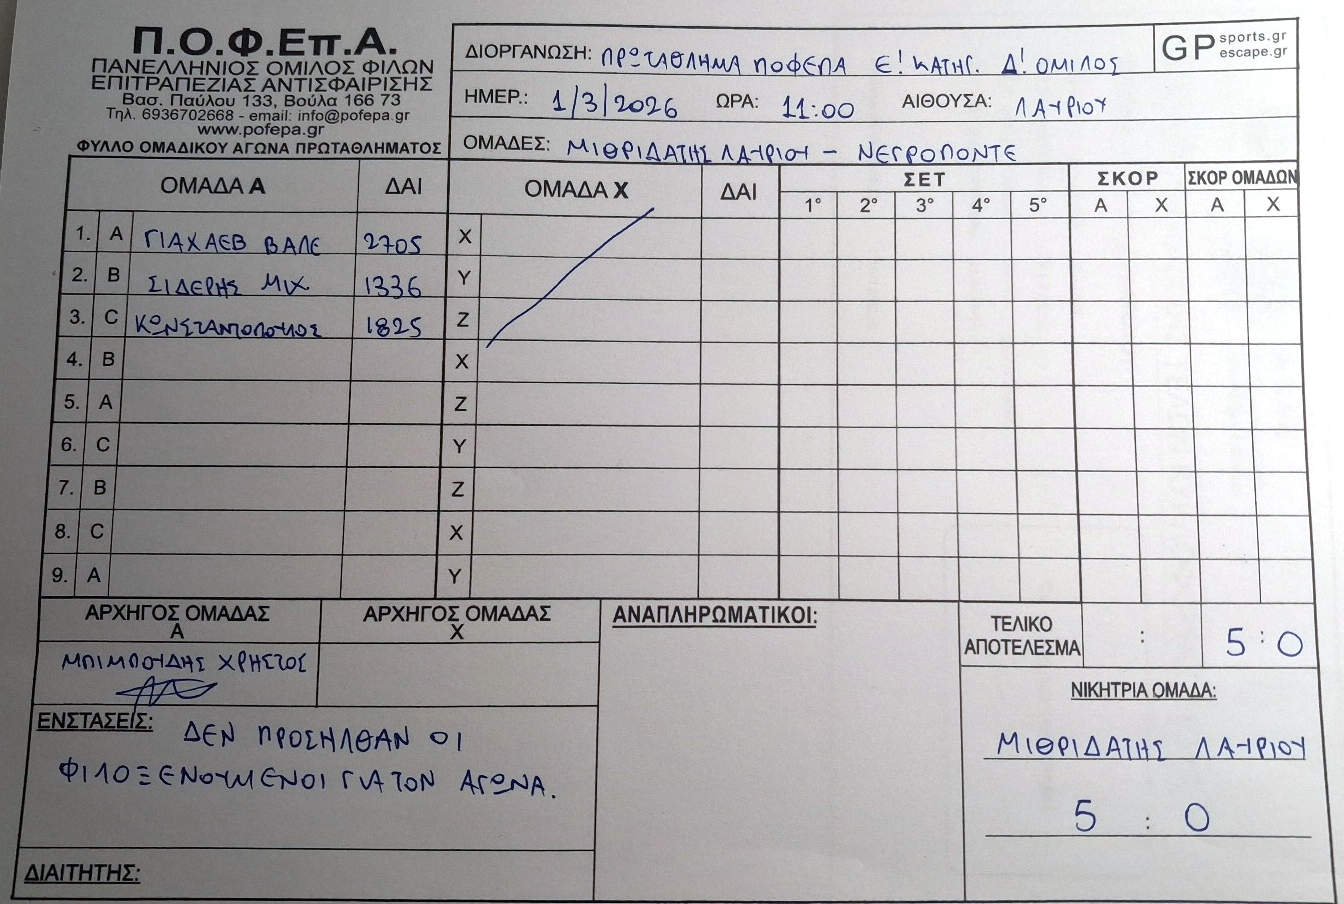 Π.Ο.Φ.Επ.Α.
ΠΑΝΕΛΛΗΝΙΟΣ ΟΜΙΛΟΣ ΦΙΛΩΝ
ΕΠΙΤΡΑΠΕΖΙΑΣ ΑΝΤΙΣΦΑΙΡΙΣΗΣ
Βασ. Παύλου 133, Βούλα 166 73
Τηλ. 6936702668 - email: info@pofepa.gr
www.pofepa.gr
ΦΥΛΛΟ ΟΜΑΔΙΚΟΥ ΑΓΩΝΑ ΠΡΩΤΑΘΛΗΜΑΤΟΣ
ΔΙΟΡΓΑΝΩΣΗ: ΠΡΩΤΑΘΛΗΜΑ ΠΟΦΕΠΑ Ε! ΚΑΤΗΓ. Δ! ΟΜΙΛΟΣ
GP sports.gr
escape.gr
ΗΜΕΡ.: 1/3/2026 ΩΡΑ: 11:00 ΑΙΘΟΥΣΑ: ΛΑΥΡΙΟΥ
ΟΜΑΔΕΣ: ΜΙΘΡΙΔΑΤΗΣ ΛΑΥΡΙΟΥ - ΝΕΓΡΟΠΟΝΤΕ
ΟΜΑΔΑ Α ΔΑΙ ΟΜΑΔΑ Χ ΔΑΙ ΣΕΤ ΣΚΟΡ ΣΚΟΡ ΟΜΑΔΩΝ
1° 2° 3° 4° 5° Α Χ Α Χ
1. A ΓΙΑΧΑΕΒ ΒΑΛΕ 2705 X
2. B ΣΙΔΕΡΗΣ ΜΙΧ 1336 Y
3. C ΚΩΝΣΤΑΝΤΟΠΟΥΛΟΣ 1825 Z
4. B X
5. A Z
6. C Y
7. B Z
8. C X
9. A Y
ΑΡΧΗΓΟΣ ΟΜΑΔΑΣ Α
ΜΠΙΜΠΟΥΔΗΣ ΧΡΗΣΤΟΣ
ΑΡΧΗΓΟΣ ΟΜΑΔΑΣ Χ
ΑΝΑΠΛΗΡΩΜΑΤΙΚΟΙ:
ΤΕΛΙΚΟ
ΑΠΟΤΕΛΕΣΜΑ : 5 : 0
ΝΙΚΗΤΡΙΑ ΟΜΑΔΑ:
ΜΙΘΡΙΔΑΤΗΣ ΛΑΥΡΙΟΥ
5 : 0
ΕΝΣΤΑΣΕΙΣ: ΔΕΝ ΠΡΟΣΗΛΘΑΝ ΟΙ
ΦΙΛΟΞΕΝΟΥΜΕΝΟΙ ΓΙΑ ΤΟΝ ΑΓΩΝΑ.
ΔΙΑΙΤΗΤΗΣ: